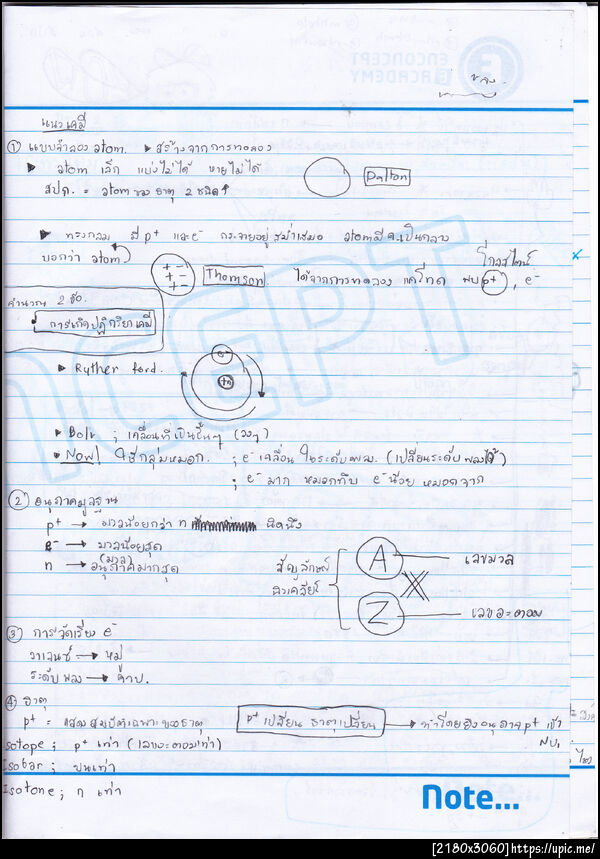 ENCONCEPT
E ACADEMY
แนวเคมี
① แบบจำลอง atom. ▸ สร้างจากการทดลอง
▸ atom เล็ก แบ่งไม่ได้ หายไม่ได้
Dalton
สปก. = atom ของ ธาตุ 2 ชนิด↑
▸ ทรงกลม มี p⁺ และ e⁻ กระจายอยู่สม่ำเสมอ atom มี ค.เป็นกลาง
บอกว่า atom
Thomson. ได้จากการทดลอง แคโทด พบ p⁺, e⁻
คำนวณ 2 ข้อ.
การเกิดปฏิกริยาเคมี
▸ Ryther ford.
▸ Bohr ; เคลื่อนที่เป็นชั้นๆ (วงๆ)
▸ Now! ใช้กลุ่มหมอก. ; e⁻ เคลื่อนในระดับพลง. (เปลี่ยนระดับพลงได้)
; e⁻ มาก หมอกทึบ e⁻ น้อย หมอกจาง
② อนุภาคมูลฐาน
p⁺ → มวลน้อยกว่า n นิดนึง
e⁻ → มวลน้อยสุด
(มวล)
n → อนุภาคมากสุด
สัญลักษณ์
นิวเคลียร์
A เลขมวล
Z เลขอะตอม
③ การจัดเรียง e⁻
วาเลนซ์ → หมู่
ระดับพลง → คาบ.
④ ธาตุ
p⁺ = แสดงสมบัติเฉพาะของธาตุ
p⁺ เปลี่ยน ธาตุเปลี่ยน → ทำโดยยิงอนุภาค p⁺ เข้า
Isotope ; p⁺ เท่า (เลขอะตอมเท่า)
Isobar ; มวลเท่า
Isotone ; n เท่า
Note...
[2180x3060]https://upic.me/